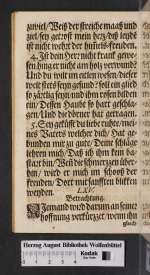 zuwiel/Weiß der streiche maaß und
ziel/sey getrost mein hertz/diß leydt
ist nicht wehrt der himels-freuden.
4. Ist dein Herr nicht kranck gewe-
sen/hing er nicht am holtz verwundt?
Und du wilt im rosen/dieser
welt stets seyn gesund? soll ein glied
so zärtlig seyn/und ihm reden bilden
ein/ Dessen Haubt so hart geschla-
gen/Und die dörner hat getragen.
5. Sey gestüpt du liebe ruhte/mei-
nes Vaters welcher dich/Hat ge-
bunden mir zu gute/Deine schläge
lehren mich/Daß ich ihm sein ba-
start bin/Weil die schmertzen über-
hin/wird er mich im schoß der
freuden/Dort mit sanfften blicken
weyden.
LXV.
Betrachtung.
Niemand wird darum an seiner
hoffnung verkürtzet/wenn ihn
gleich
Herzog August Bibliothek Wolfenbüttel